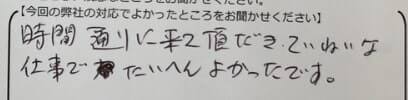 【今回の弊社の対応でよかったところをお聞かせください】
時間通りに来て頂だき、ていねいな
仕事で たいへんよかったです。